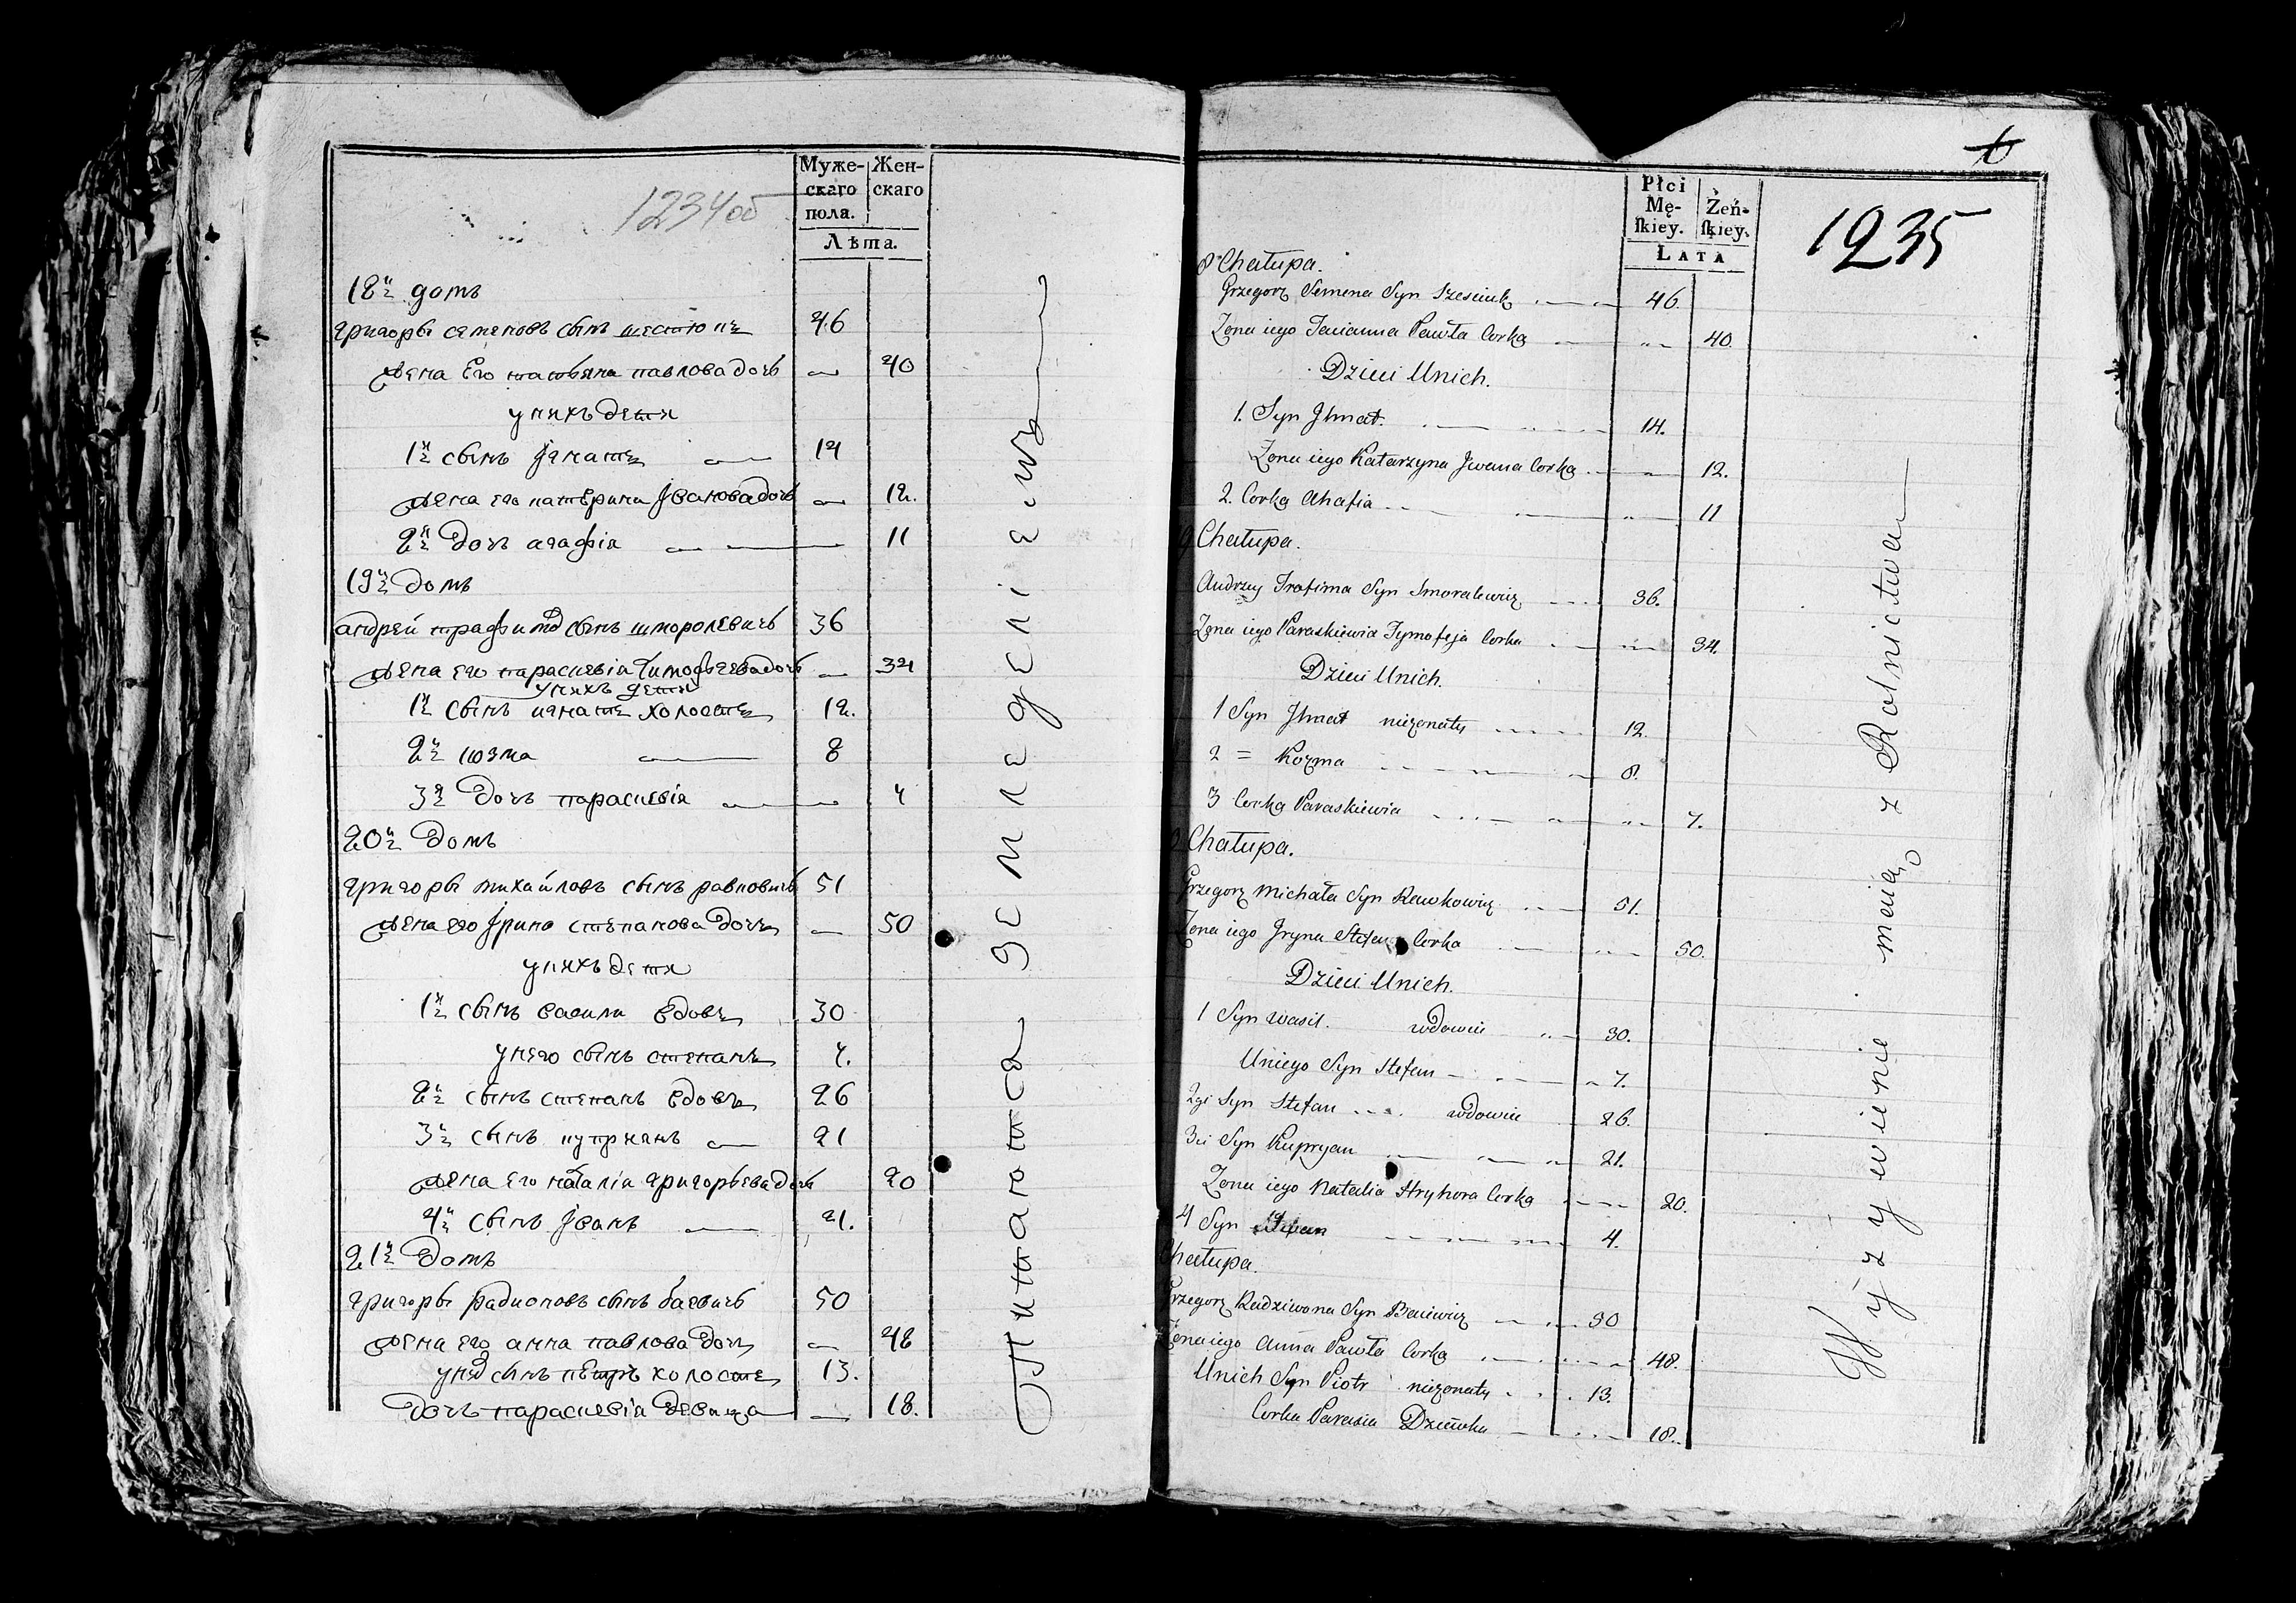 1234об
Муже-
скаго
пола.
Жен-
скаго
Лѣта.
18й домъ
григоры семеновъ сынъ шестюкъ 46
жена его татьяна павлова дочь — 40
унихъ дети
1й сынъ Ігнатъ — 14
жена его катерина Іванова дочь — 12.
2я дочь агафіа — 11
19й домъ
андрей трафимовъ сынъ шморолевичь 36
жена его параскевіа тимофѣева дочь — 34
унихъ дети
1й сынъ игнатъ холостъ 12.
2й козма — 8
3я дочь параскевіа — 7
20й домъ
григоры михайловъ сынъ равковичь 51
жена его Ірина степанова дочь — 50
унихъ дети
1й сынъ васили вдовъ 30
унего сынъ степанъ 7.
2й сынъ степанъ вдовъ 26
3й сынъ куприанъ — 21
жена его наталіа григорьева дочь 20
4й сынъ Іванъ — 21.
21й домъ
григоры радионовъ сынъ баевичь 50
жена его анна павлова дочь — 48
унихъ сынъ петръ холостъ 13.
дочь параскевіа девица — 18.
Питаются земледеліемъ
Płci
Mę-
ſkiey.
Żeń-
ſkiey.
LATA
1235
8 Chałupa.
Grzegorz Semena Syn Szesciuk 46.
Zona iego Tacianna Pawła Corka 40.
Dzieci Unich.
1. Syn Ihnat. 14.
Zona iego Katarzyna Jwana Corka 12.
2. Corka Ahafia 11
9 Chałupa.
Andrzey Trafima Syn Smoralewicz 36.
Zona iego Paraskiewia Tymofeja Corka 34.
Dzieci Unich.
1 Syn Ihnat niezonaty 12.
2 = Kozma 8.
3 Corka Paraskiewia 7.
Chałupa.
Grzegorz Michała Syn Rawkowicz 51.
Zona iego Jryna Stefana Corka 50.
Dzieci Unich.
1 Syn Wasil. wdowiec 30.
Uniego Syn Stefan 7.
2gi Syn Stefan wdowiec 26.
3ci Syn Kupryan 21.
Zona iego Natalia Hryhora Corka 20.
4 Syn 4.
Chałupa.
Grzegorz Radziwona Syn Baiewicz 50
Zona iego Anna Pawła Corka 48.
Unich Syn Piotr niezonaty 13.
Corka Parasia Dziewka 18.
Wyzywienie maią z Rolnictwa